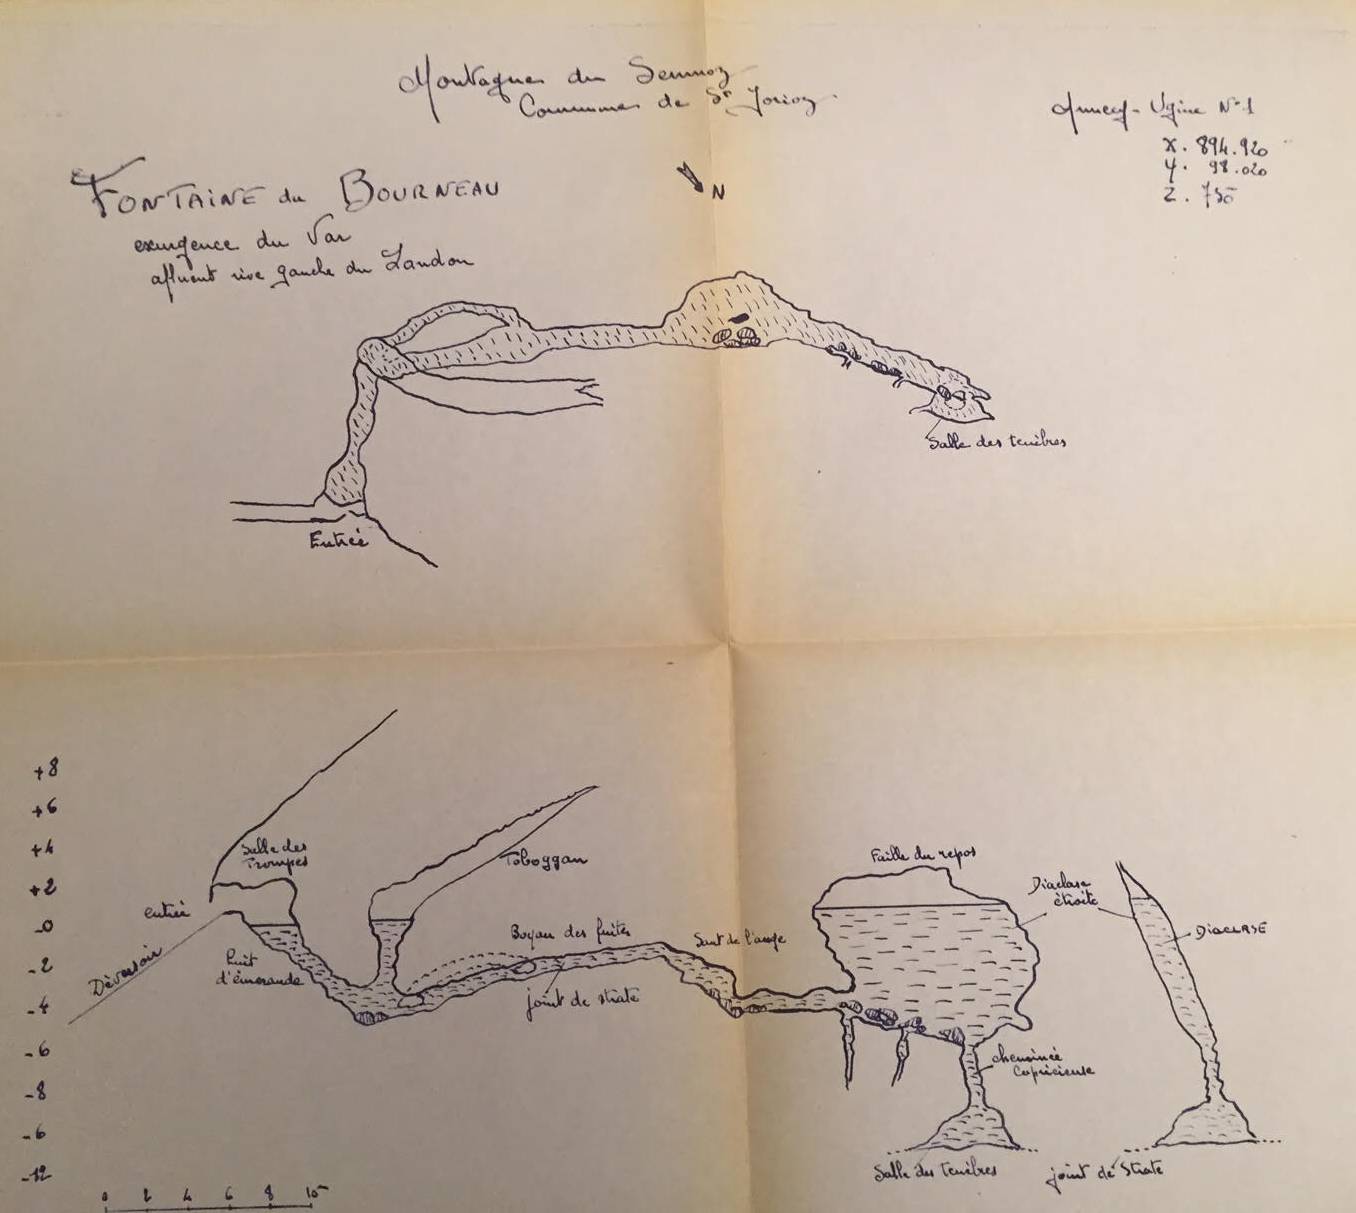 Montagne du Semnoz
Commune de St Jorioz
Annecy - Ugine N°1
X. 894.920
Y. 98.020
Z. 750
FONTAINE du BOURNEAU
exurgence du Var
affluent rive gauche du Laudon
N
Salle des tenèbres
Entrée
+8
+6
+4
+2
-0
-2
-4
-6
-8
-6
-12
Salle des
Trompes
Toboggan
entrée
Déversoir
Puit
d'émeraude
Boyau des fuites
joint de strate
Saut de l'ange
Faille du repos
Diaclase
étroite
DIACLASE
cheminée
Capricieuse
Salle des tenèbres
joint de strate
0 2 4 6 8 10